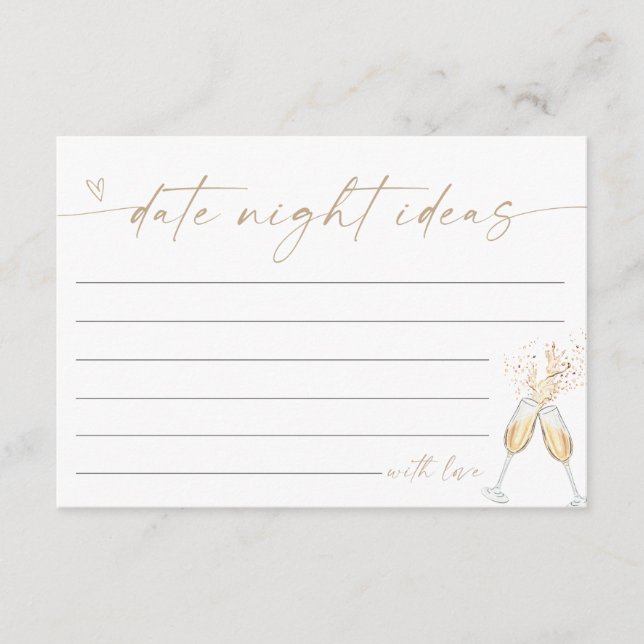 date night ideas
with love